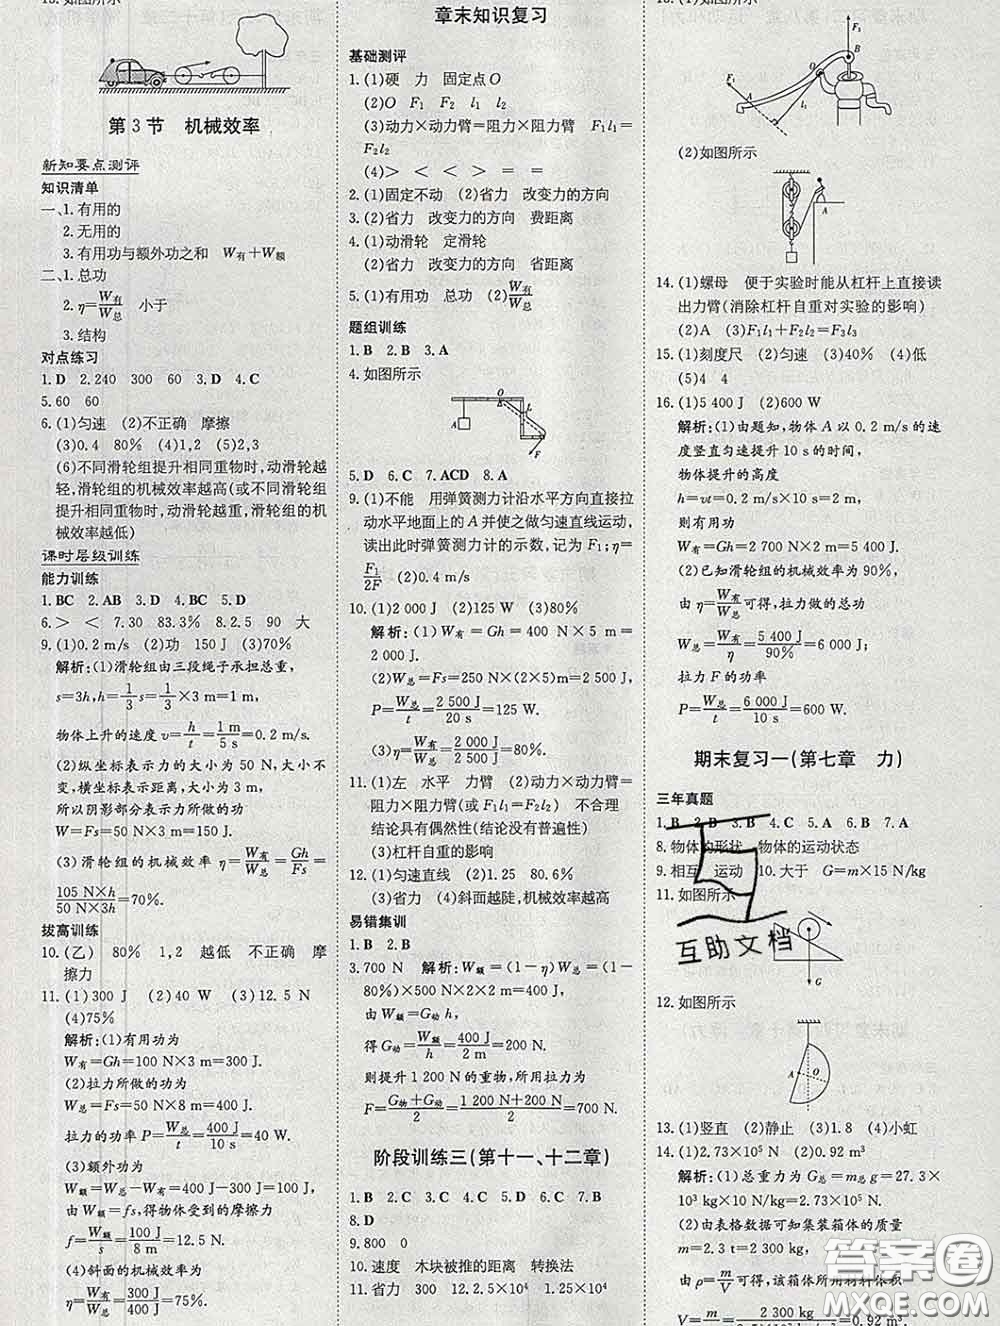 15.(1)如图所示
第3节 机械效率
新知要点测评
知识清单
一、1.有用的
2.无用的
3.有用功与额外功之和 W有+W额
二、1.总功
2.η=W有/W总 小于
3.结构
对点练习
1.D 2.240 300 60 3.D 4.C
5.60 60
6.(1)匀速 (2)不正确 摩擦
(3)0.4 80% (4)1,2 (5)2,3
(6)不同滑轮组提升相同重物时,动滑轮越
轻,滑轮组的机械效率越高(或不同滑轮组
提升相同重物时,动滑轮越重,滑轮组的机
械效率越低)
课时层级训练
能力训练
1.BC 2.AB 3.D 4.BC 5.D
6.> < 7.30 83.3% 8.2.5 90 大
9.(1)0.2m/s (2)功 150 J (3)70%
解析:(1)滑轮组由三段绳子承担总重,
s=3h,h=1/3 s=1/3×3 m=1 m,
物体上升的速度v=h/t=1 m/5 s=0.2 m/s.
(2)纵坐标表示力的大小为50 N,大小不
变,横坐标表示距离,大小为3 m,
所以阴影部分表示力所做的功
W=Fs=50 N×3 m=150 J.
(3)滑轮组的机械效率 η=W有/W总=Gh/Fs=
105 N×h/50 N×3h=70%.
拔高训练
10.(乙) 80% 1,2 越低 不正确 摩
擦力
11.(1)300 J (2)40 W (3)12.5 N
(4)75%
解析:(1)有用功为
W有=Gh=100 N×3 m=300 J.
(2)拉力所做的功为
W总=Fs=50 N×8 m=400 J,
拉力的功率 P=W总/t=400 J/10 s=40 W.
(3)额外功为
W额=W总-W有=400 J-300 J=100 J,
由W额=fs,得物体受到的摩擦力
f=W额/s=100 J/8 m=12.5 N.
(4)斜面的机械效率为
η=W有/W总=300 J/400 J=75%.
章末知识复习
基础测评
1.(1)硬 力 固定点O
(2)O F1 F2 l1 l2
(3)动力×动力臂=阻力×阻力臂 F1l1=
F2l2
(4)> < < > = =
2.(1)固定不动 (2)省力 改变力的方向
3.(2)省力 改变力的方向 费距离
4.(1)动滑轮 定滑轮
(2)省力 改变力的方向 省距离
5.(1)有用功 总功 (2)W有/W总
题组训练
1.B 2.B 3.A
4.如图所示
O
K
L
A
F
5.D 6.C 7.ACD 8.A
9.(1)不能 用弹簧测力计沿水平方向直接拉
动水平地面上的A并使之做匀速直线运动,
读出此时弹簧测力计的示数,记为F1;η=
F1/2F (2)0.4 m/s
10.(1)2 000 J (2)125 W (3)80%
解析:(1)W有=Gh=400 N×5 m=
2 000 J.
(2)W总=Fs=250 N×(2×5)m=2 500 J,
P=W总/t=2 500 J/20 s=125 W.
(3)η=W有/W总=2 000 J/2 500 J=80%.
11.(1)左 水平 力臂 (2)动力×动力臂=
阻力×阻力臂(或F1l1=F2l2) 不合理
结论具有偶然性(结论没有普遍性)
(3)杠杆自重的影响
12.(1)匀速直线 (2)1.25 80.6%
(3)省力 (4)斜面越陡,机械效率越高
易错集训
1.B 2.B
3.700 N 解析:W额=(1-η)W总=(1-
80%)×500 N×2×2 m=400 J,
由W额=G动h,
得G动=W额/h=400 J/2 m=200 N.
则提升1 200 N的重物,所用拉力
F=G物+G动/2=1 200 N+200 N/2=700 N.
阶段训练三(第十一、十二章)
1.B 2.C 3.C 4.D 5.D 6.C 7.B
8.D
9.800 0
10.速度 木块被推的距离 转换法
11.省力 300 12.2.5×10⁴ 1.25×10⁴
13.(1)如图所示
F1
O
B
A
F1
l1
(2)如图所示
A
14.(1)螺母 便于实验时能从杠杆上直接读
出力臂(消除杠杆自重对实验的影响)
(2)A (3)F1l1+F2l2=F3l3
15.(1)刻度尺 (2)匀速 (3)40% (4)低
(5)4 4
16.(1)5 400 J (2)600 W
解析:(1)由题知,物体A以0.2 m/s的速
度竖直匀速提升10 s的时间,
物体提升的高度
h=vt=0.2 m/s×10 s=2 m,
则有用功
W有=Gh=2 700 N×2 m=5 400 J.
(2)已知滑轮组的机械效率为90%,
由η=W有/W总可得,拉力做的总功
W总=W有/η=5 400 J/90%=6 000 J,
拉力F的功率
P=W总/t=6 000 J/10 s=600 W.
期末复习一(第七章 力)
三年真题
1.B 2.B 3.B 4.C 5.A 6.B 7.A
8.物体的形状 物体的运动状态
9.相互 运动 10.大于 G=m×15 N/kg
11.如图所示
G
12.如图所示
A
O
13.(1)竖直 (2)静止 (3)8 (4)小虹
14.(1)2.73×10⁵ N (2)0.92 m³
解析:(1)总重力为G总=m总g=27.3×
10³ kg×10 N/kg=2.73×10⁵ N.
(2)由表格数据可知集装箱体的质量
m=2.3 t=2 300 kg,
由ρ=m/V可得,该箱体所用材料体积
互助文档
答案圈
MXQE.COM